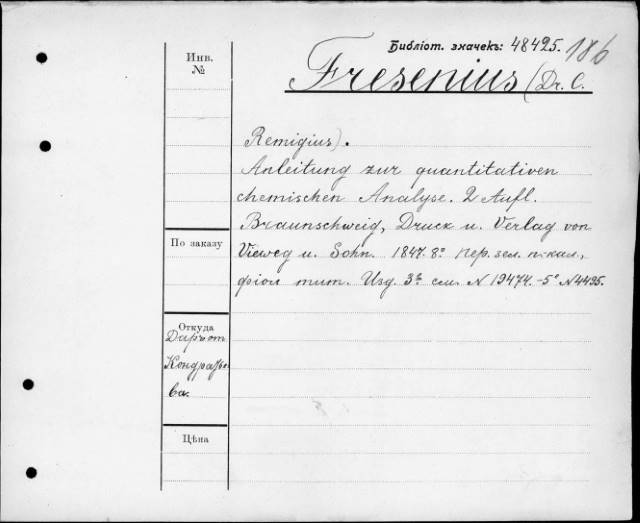 Библіот. значекъ: 48425. 186
Инв. №
Fresenius (Dr. C.
Remigius).
Anleitung zur quantitativen
chemischen Analyse. 2 Aufl.
Braunschweig, Druck u. Verlag von
Vieweg u. Sohn. 1847. 8° пер. зел. п-кал.,
фіол тит. Изд. 3ье см. N 19474.-5° N4495.
По заказу
Откуда
Даръ от
Кондрать
ва.
Цѣна